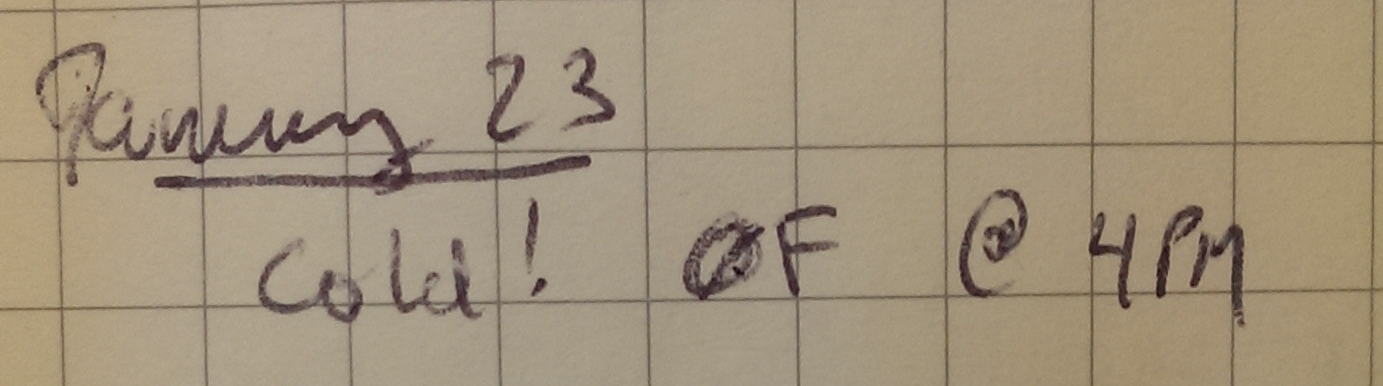 January 23
Cold! 0F @ 4PM